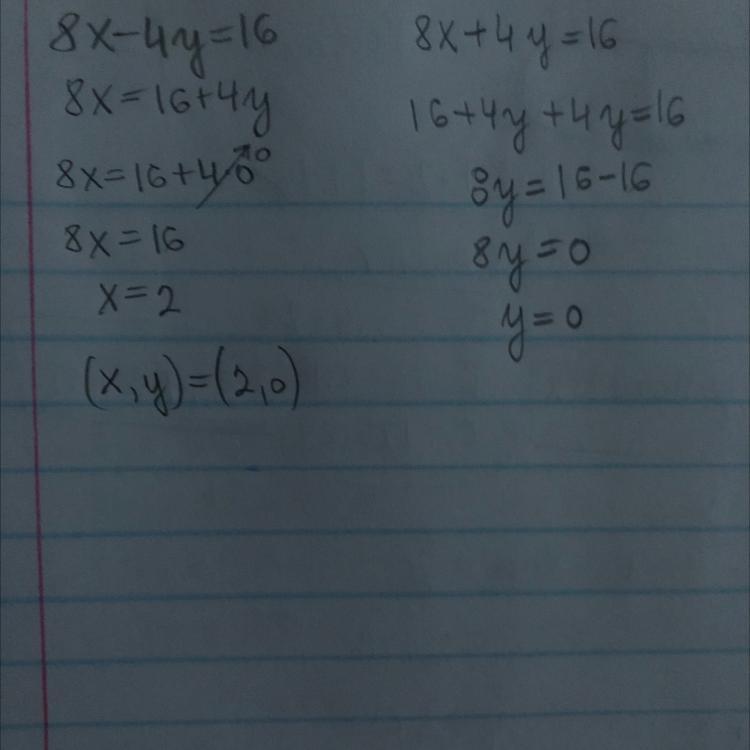 8x-4y=16
8x=16+4y
8x=16+4·0 0
8x=16
x=2
(x,y)=(2,0)
8x+4y=16
16+4y+4y=16
8y=16-16
8y=0
y=0